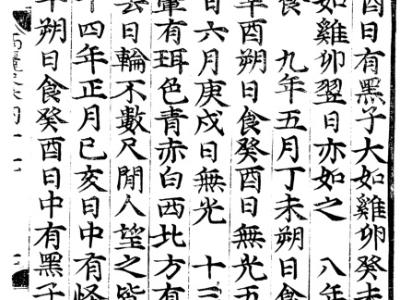 酉日有黑子大如雞卵癸未
如雞卵翌日亦如之 八年
食 九年五月丁未朔日食
辛酉朔日食癸酉日無光五
日六月庚戌日無光 十三
暈有珥色青赤白西北方有
雲日輪不數尺閒人望之皆
十四年正月己亥日中有怪
年朔日食癸酉日中有黑子